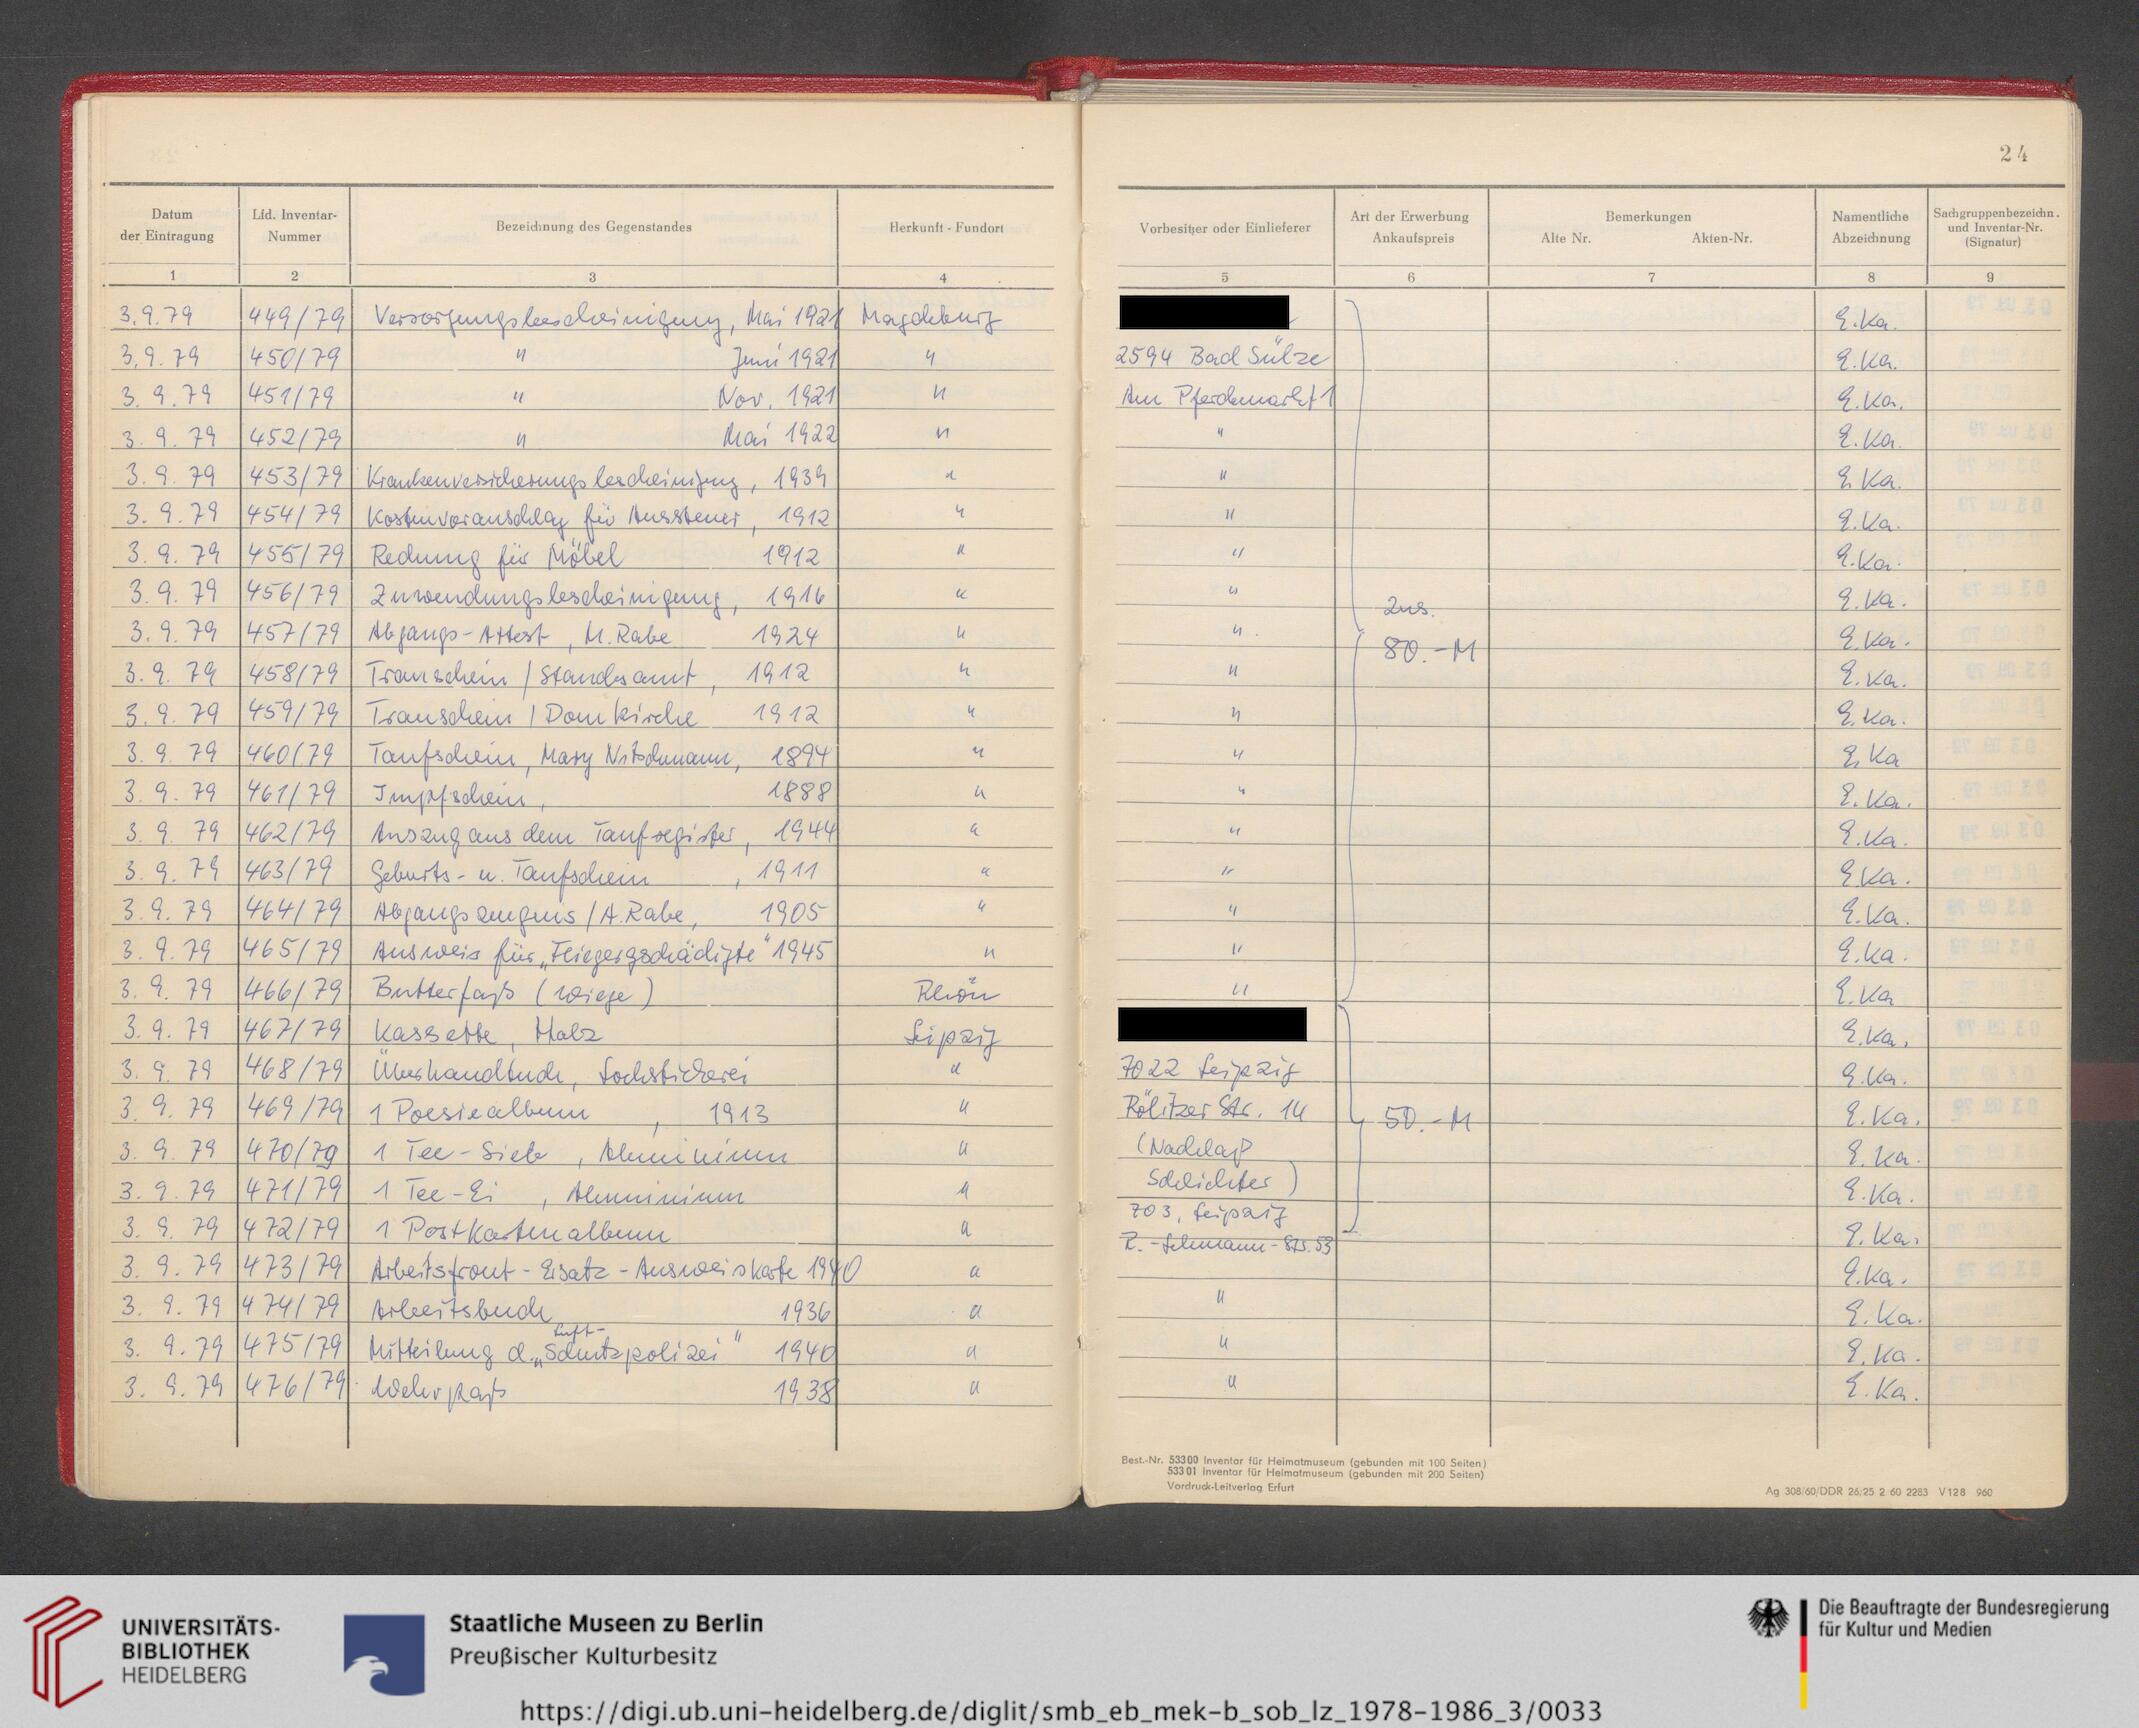 24
Datum der Eintragung | Lfd. Inventar-Nummer | Bezeichnung des Gegenstandes | Herkunft - Fundort | Vorbesitzer oder Einlieferer | Art der Erwerbung Ankaufspreis | Bemerkungen Alte Nr. Akten-Nr. | Namentliche Abzeichnung | Sachgruppenbezeichn. und Inventar-Nr. (Signatur)
1 | 2 | 3 | 4 | 5 | 6 | 7 | 8 | 9
3.9.79 | 449/79 | Versorgungsbescheinigung, Mai 1921 | Magdeburg | E.Ka.
3.9.79 | 450/79 | " Juni 1921 | " | 2594 Bad Sülze | E.Ka.
3.9.79 | 451/79 | " Nov. 1921 | " | Am Pferdemarkt 1 | E.Ka.
3.9.79 | 452/79 | " Mai 1922 | " | " | E.Ka.
3.9.79 | 453/79 | Krankenversicherungsbescheinigung, 1939 | " | " | E.Ka.
3.9.79 | 454/79 | Kostenvoranschlag für Aussteuer, 1912 | " | " | E.Ka.
3.9.79 | 455/79 | Rechnung für Möbel 1912 | " | " | E.Ka.
3.9.79 | 456/79 | Zuwendungsbescheinigung, 1916 | " | " | zus. | E.Ka.
3.9.79 | 457/79 | Abgangs-Attest, M. Rabe 1924 | " | " | 80.-M | E.Ka.
3.9.79 | 458/79 | Trauschein / Standesamt, 1912 | " | " | E.Ka.
3.9.79 | 459/79 | Trauschein / Domkirche 1912 | " | " | E.Ka.
3.9.79 | 460/79 | Taufschein, Mary Nitschmann, 1894 | " | " | E.Ka
3.9.79 | 461/79 | Impfschein, 1888 | " | " | E.Ka.
3.9.79 | 462/79 | Auszug aus dem Taufregister, 1944 | " | " | E.Ka.
3.9.79 | 463/79 | Geburts- u. Taufschein, 1911 | " | " | E.Ka.
3.9.79 | 464/79 | Abgangszeugnis / A. Rabe, 1905 | " | " | E.Ka.
3.9.79 | 465/79 | Ausweis für „Fliegergschädigte" 1945 | " | " | E.Ka.
3.9.79 | 466/79 | Butterfaß (Wiege) | Rhön | " | E.Ka
3.9.79 | 467/79 | Kassette, Holz | Leipzig | E.Ka.
3.9.79 | 468/79 | Überhandtuch, Lochstickerei | " | 7022 Leipzig | E.Ka.
3.9.79 | 469/79 | 1 Poesiealbum, 1913 | " | Str. 14 | 50.-M | E.Ka.
3.9.79 | 470/79 | 1 Tee-Sieb, Aluminium | " | (Nachlaß | E.Ka.
3.9.79 | 471/79 | 1 Tee-Ei, Aluminium | " | Schlichter) | E.Ka.
3.9.79 | 472/79 | 1 Postkartenalbum | " | 703, Leipzig | E.Ka.
R.-Lehmann-Str. 53
3.9.79 | 473/79 | Arbeitsfront-Ersatz-Ausweiskarte 1940 | " | E.Ka.
3.9.79 | 474/79 | Arbeitsbuch 1936 | " | " | E.Ka.
3.9.79 | 475/79 | Mitteilung d. „Luft-Schutzpolizei" 1940 | " | " | E.Ka.
3.9.79 | 476/79 | Wehrpaß 1938 | " | " | E.Ka.
Best.-Nr. 53300 Inventar für Heimatmuseum (gebunden mit 100 Seiten)
53301 Inventar für Heimatmuseum (gebunden mit 200 Seiten)
Vordruck-Leitverlag Erfurt
Ag 308/60/DDR 26/25 2 60 2283 V128 960
UNIVERSITÄTS-
BIBLIOTHEK
HEIDELBERG
Staatliche Museen zu Berlin
Preußischer Kulturbesitz
Die Beauftragte der Bundesregierung
für Kultur und Medien
https://digi.ub.uni-heidelberg.de/diglit/smb_eb_mek-b_sob_lz_1978-1986_3/0033